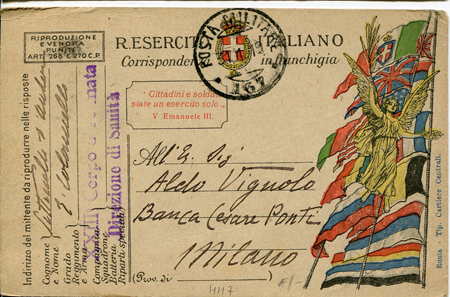 RIPRODUZIONE
E VENDITA
PUNITE
ART. 266 E 270 C.P.
R. ESERCITO ITALIANO
Corrispondenza in franchigia
POSTA MILITARE
167
"Cittadini e soldati
siate un esercito solo"
V Emanuele III.
All'E. Sig
Aldo Vignolo
Banca Cesare Ponti
Milano
(Prov. di
Indirizzo del mittente da riprodurre nelle risposte
Cognome
Nome
Grado
Reggimento
e Arma
Compagnia
Squadrone
Batteria
Riparto speciale
Corpo d'Armata
Direzione di Sanità
Roma - Tip. Cartiere Centrali.